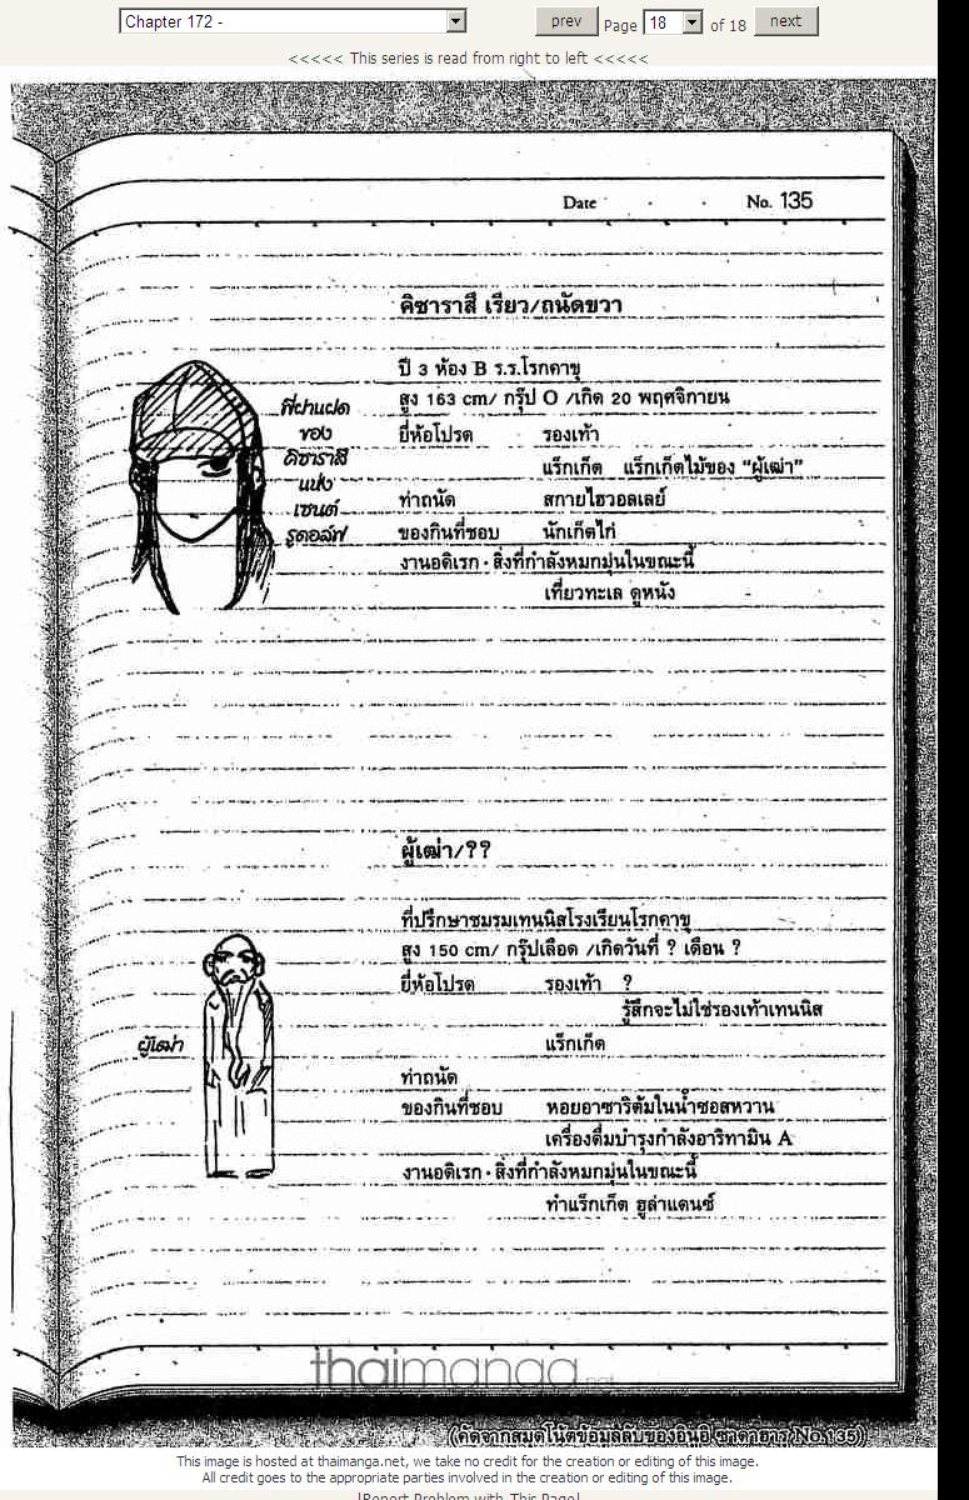 Chapter 172 -
prev Page 18 of 18 next
<<<<< This series is read from right to left <<<<<
Date . . . No. 135
คิซาราสึ เรียว/ถนัดขวา
ปี 3 ห้อง B ร.ร.โรกคาขุ
สูง 163 cm/ กรุ๊ป O /เกิด 20 พฤศจิกายน
ยี่ห้อโปรด รองเท้า
แร็กเก็ต แร็กเก็ตไม้ของ "ผู้เฒ่า"
ท่าถนัด สกายไฮวอลเลย์
ของกินที่ชอบ นักเก็ตไก่
งานอดิเรก · สิ่งที่กำลังหมกมุ่นในขณะนี้
เที่ยวทะเล ดูหนัง
พี่ฝาแฝด
ของ
คิซาราสึ
แห่ง
เซนต์
รูดอล์ฟ
ผู้เฒ่า/??
ที่ปรึกษาชมรมเทนนิสโรงเรียนโรกคาขุ
สูง 150 cm/ กรุ๊ปเลือด /เกิดวันที่ ? เดือน ?
ยี่ห้อโปรด รองเท้า ?
รู้สึกจะไม่ใช่รองเท้าเทนนิส
แร็กเก็ต
ท่าถนัด
ของกินที่ชอบ หอยอาซาริต้มในน้ำซอสหวาน
เครื่องดื่มบำรุงกำลังอาริทามิน A
งานอดิเรก · สิ่งที่กำลังหมกมุ่นในขณะนี้
ทำแร็กเก็ต ฮูล่าแดนซ์
ผู้เฒ่า
thaimanga.net
(คัดจากสมุดโน้ตข้อมูลลับของอินุอิ ซาดาฮารุ No.135)
This image is hosted at thaimanga.net, we take no credit for the creation or editing of this image.
All credit goes to the appropriate parties involved in the creation or editing of this image.
[Report Problem with This Page]